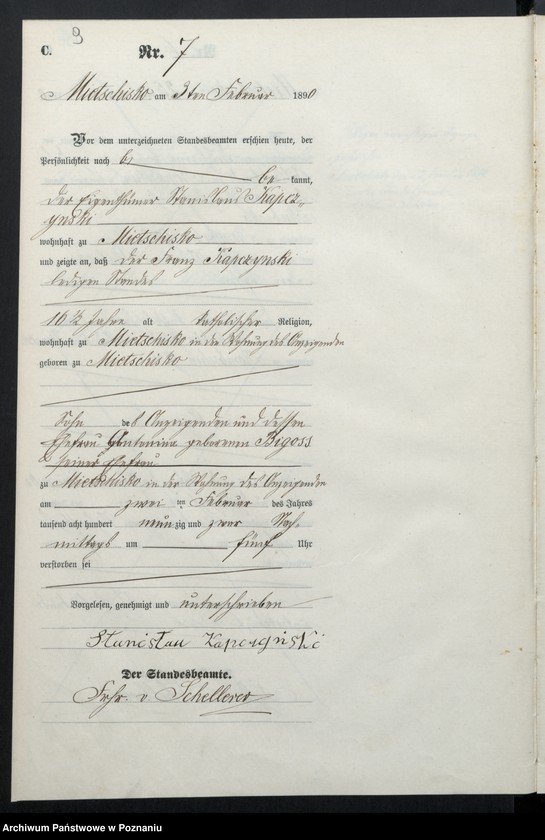 C. 9
Nr. 7
Mietschisko am 3ten Februar 1890
Vor dem unterzeichneten Standesbeamten erschien heute, der
Persönlichkeit nach be
be kannt,
der Eigenthümer Stanislaus Kapcz„
ynski
wohnhaft zu Mietschisko
und zeigte an, daß der Franz Kapczynski
ledigen Standes
16 ½ Jahre alt katholischer Religion,
wohnhaft zu Mietschisko in der Wohnung des Anzeigenden
geboren zu Mietschisko
Sohn des Anzeigenden und dessen
Ehefrau Antonina geborenen Bigoss
seiner Ehefrau
zu Mietschisko in der Wohnung des Anzeigenden
am zwei ten Februar des Jahres
tausend acht hundert neun zig und zwar Nach„
mittags um fünf Uhr
verstorben sei
Vorgelesen, genehmigt und unterschrieben
Stanisław Kapczyński
Der Standesbeamte.
Frhr. v. Schellerer
Archiwum Państwowe w Poznaniu